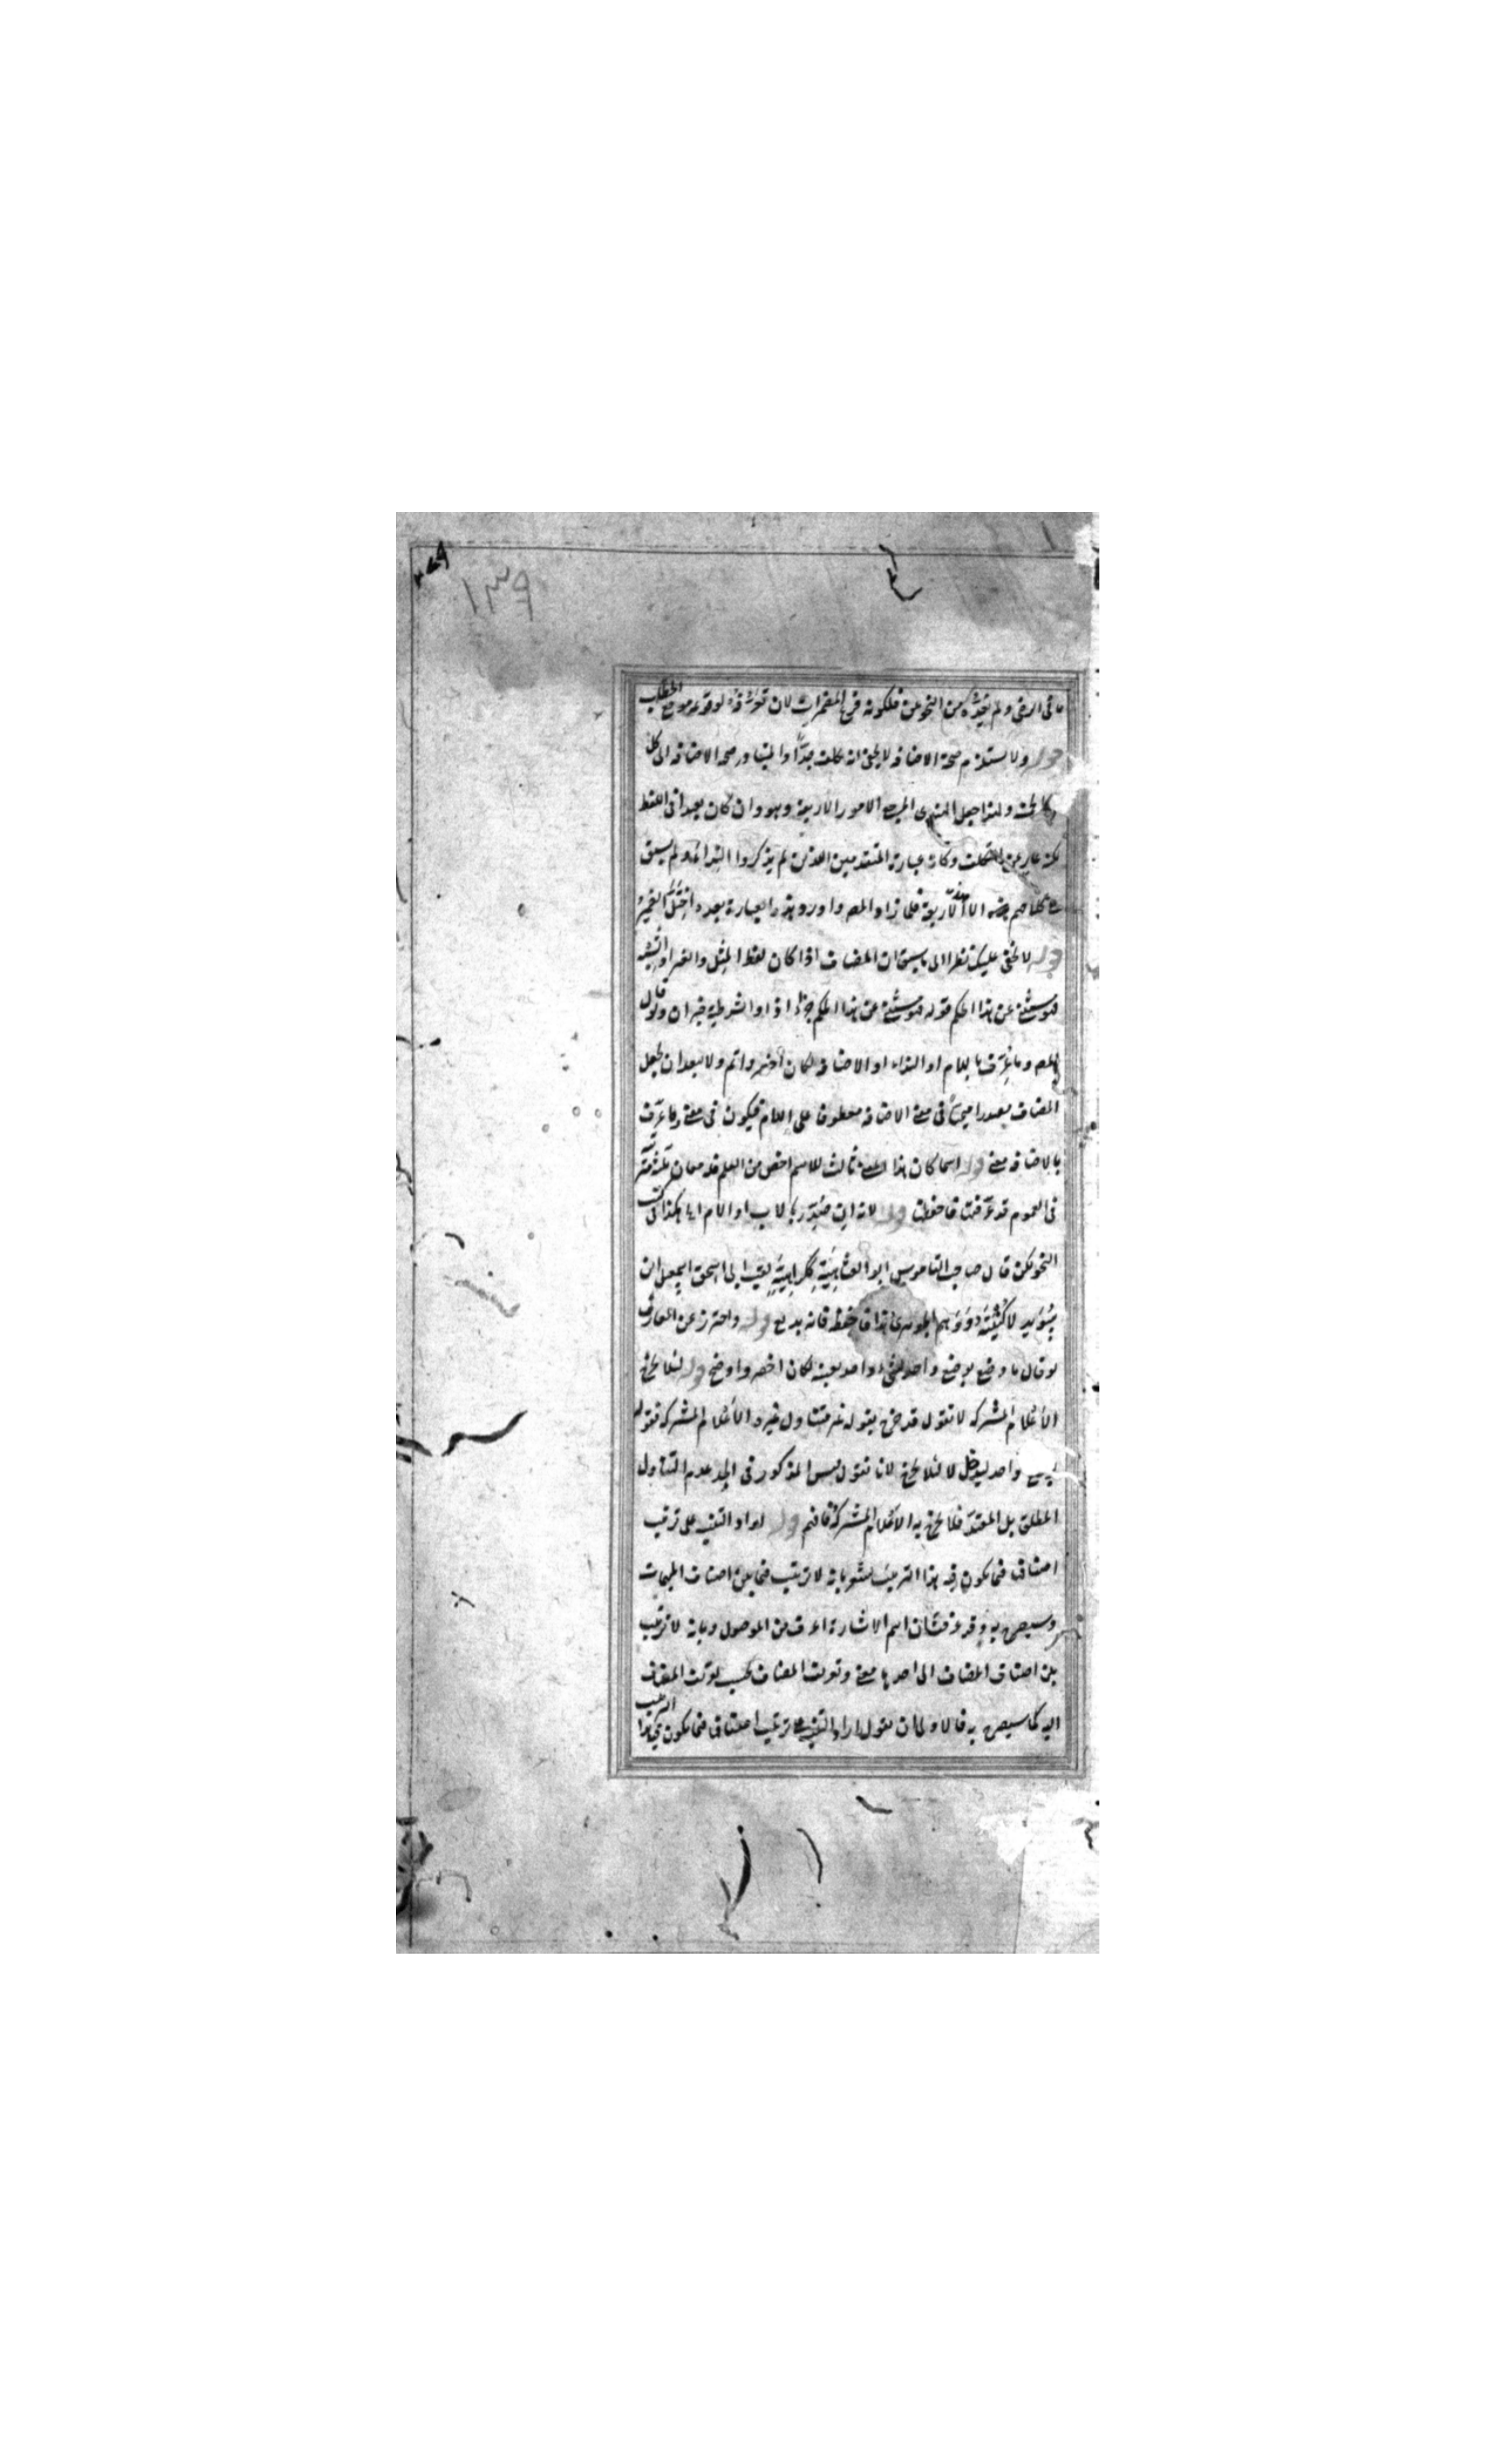 ١٣٩
ما فى الرضى ولم يعده من النحويين فلكونه فرع المضمرات لان تعرفه لوقوعه موقع الخطاب
قوله ولا يستلزم صحة الاضافة لا يخفى انه تكلف جدًّا والمتبادر صحة الاضافة الى كل
ولذا جعل الهندى المرجع الامور الاربعة وهو وان كان بعيدا فى اللفظ
لكنه عار عن التكلف وكانه عبارة المتقدمين الذين لم يذكروا النداء ولم يسبق
كلامهم الا الاربعة فلما زاد المص واورد هذه العبارة بعده اختل الضمير
قوله لا يخفى عليك نظرا الى ما سبق ان المضاف اذا كان لفظ المثل والغير او الشبه
فهو مستثنى عن هذا الحكم قوله فهو مستثنى عن هذا الحكم جزاء اذا والشرطية خبر ان ولو قال
المص وما عرف باللام او النداء او الاضافة لكان اخصر واتم ولا يبعد ان يجعل
المضاف مصدرا ميميا فى معنى الاضافة معطوف على اللام فيكون فى معنى وما عرف
بالاضافة معنى قوله اسما كان هذا المعنى ثالث للاسم اخص من العلم فله معان ثلثة مترتبة
فى العموم قد عرفت فاحفظه قوله لانه ان صدر بالاب او الام هكذا فى كتب
النحو لكن قال صاحب القاموس ابو العتاهية ككراهية لقب ابى اسحق اسمعيل بن
سويد لا كنيته ووهم الجوهرى هذا فاحفظ فانه بديع قوله واحترز عن المعارف
لو قال ما وضع بوضع واحد لشىء واحد بعينه لكان اخصر واوضح قوله لئلا يخرج
الاعلام المشتركة لا نقول قد خرج بقوله غير متناول غيره الاعلام المشتركة فقوله
بوضع واحد ليدخل لا لئلا يخرج لانا نقول ليس المذكور فى الحد عدم التناول
المطلق بل المقيد فلا يخرج به الاعلام المشتركة فافهم قوله اراد التنبيه على ترتيب
اصناف فيما يكون فيه هذا الترتيب مشعر بانه لا ترتيب فيما بين اصناف المبهمات
وسيصرح به وقد عرفت ان اسم الاشارة اعرف من الموصول وبانه لا ترتيب
بين اصناف المضاف الى احدها معنى وتعريف المضاف كسب تعريف المضاف
اليه كما سيصرح به فالاولى ان يقول اراد التنبيه على ترتيب اصناف فيما يكون فيه هذا الترتيب